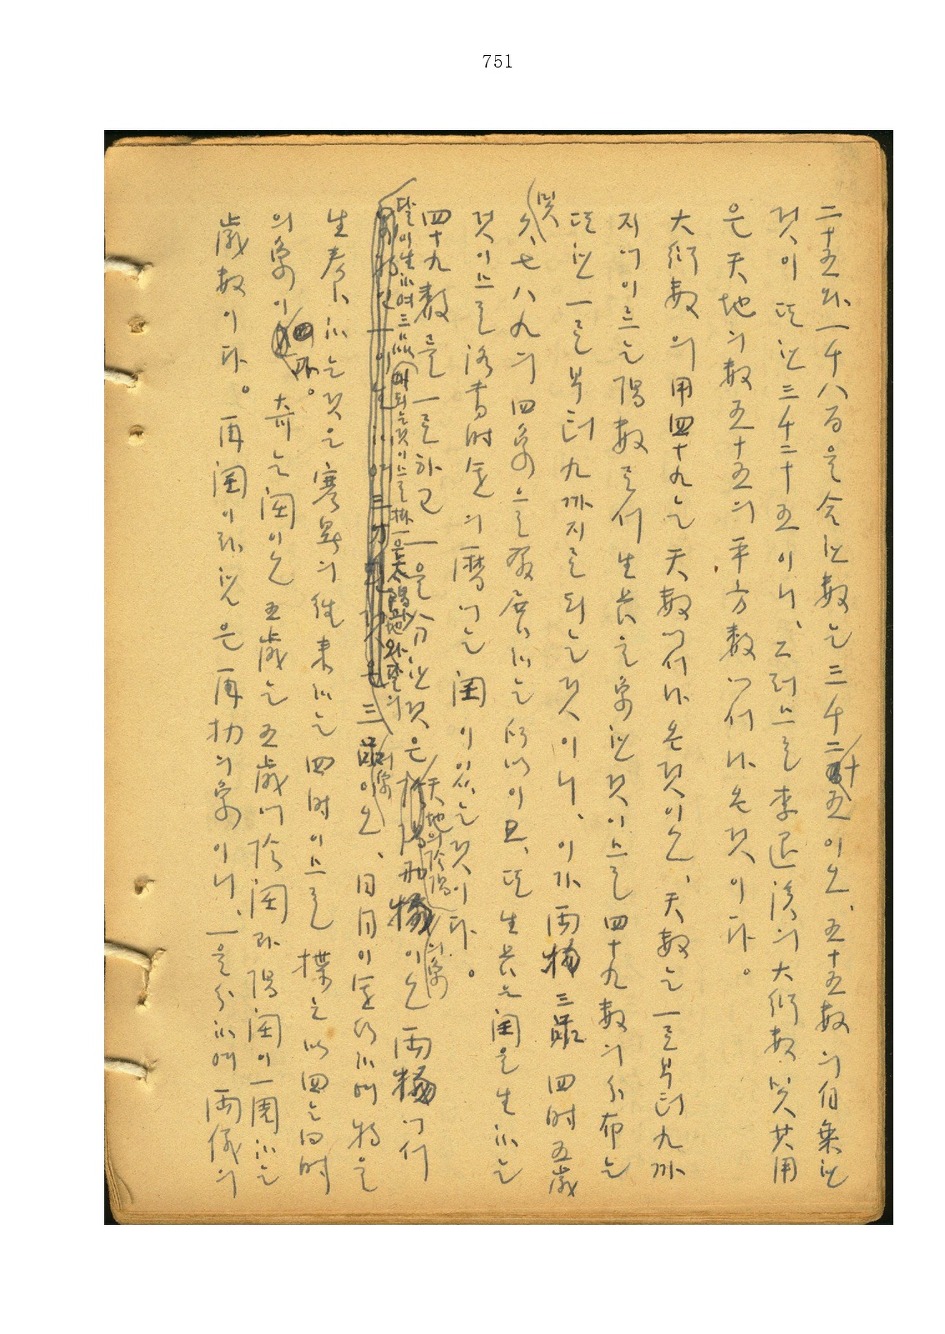 751
二十五와 一千八百을 合한 數는 三千二十五이오, 五十五數의 自乘한
것이 또한 三千二十五이니, 그러므로 李退溪의 大衍數 其用
은 天地의 數 五十五의 平方數에서 나온 것이다.
大衍數의 用 四十九는 天數에서 나온 것이오, 天數는 一로부터 九까
지에 이르는 陽數로서 生長을 象한 것이므로 四十九數의 分布는
또한 一로부터 九까지로 되는 것이니, 이가 兩 三 四時 五歲
六、七八九의 四象을 하는 所以이고, 또 生長은 閏을 生하는
것이므로 洛書時運의 曆에는 閏이 있는 것이다.
四十九數를 一로 하고 一을 分한 것은 天地의 陰陽의 象이오 兩에서
달이 生하여 三이 되는 것이므로 掛一은 太陽과 地와 달의 象
三 이오, 日月이 運行하여 物을
生 하는 것은 寒暑의 往來하는 四時이므로 揲之以四는 四時
의 象이라。 奇는 閏이오 五歲는 五歲에 陰閏과 陽閏이 一周하는
歲數이다。 再閏이라 함은 再扐의 象이니, 一을 分하여 兩儀의